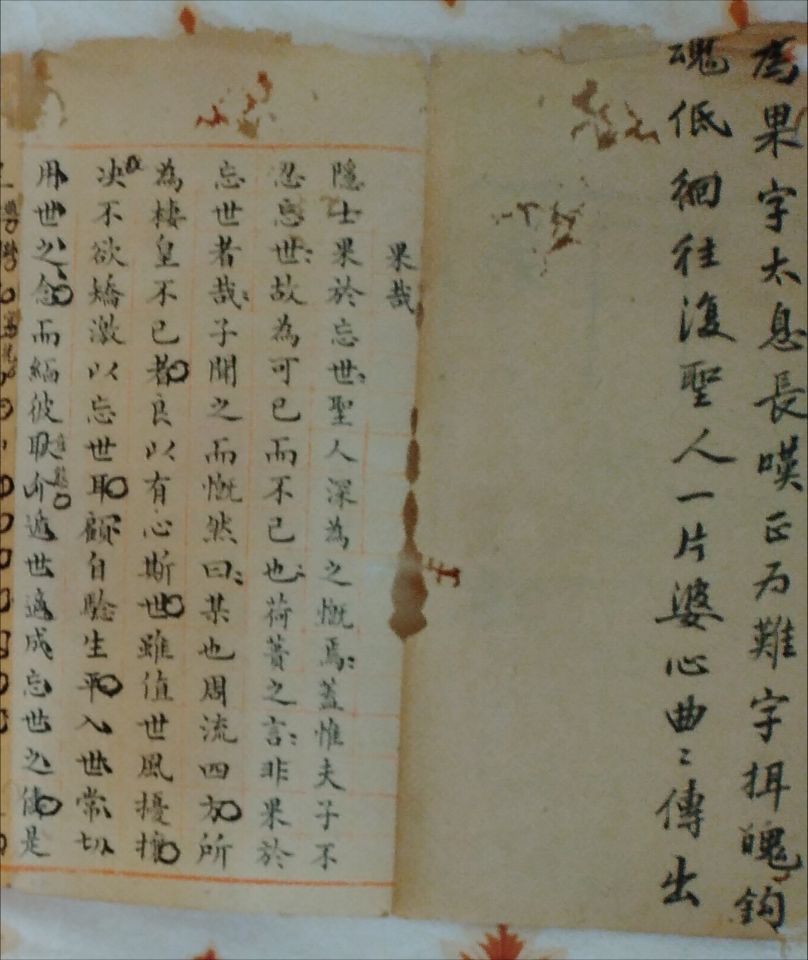 為果字太息長嘆正为難字揖魄鈎
魂低徊往復聖人一片婆心曲〻傳出
果哉
隱士果於忘世聖人深為之慨焉蓋惟夫子不
忍忘世故為可已而不已也荷蕢之言非果於
忘世者哉子聞之而慨然曰某也周流四方所
為棲皇不已者良以有心斯世雖值世風擾攘
决不欲矯激以忘世耳顧自騐生平入世常切
用世之念而緬彼耿介遁世適成忘世之使是